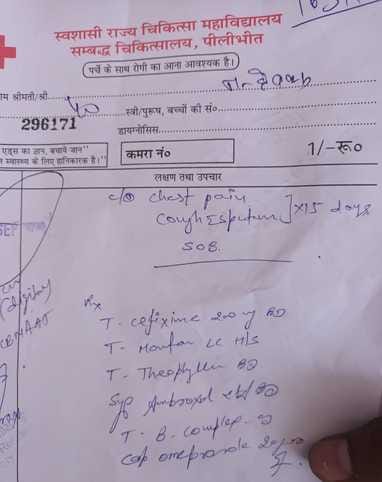 स्वशासी राज्य चिकित्सा महाविद्यालय
सम्बद्ध चिकित्सालय, पीलीभीत
(पर्चे के साथ रोगी का आना आवश्यक है।)
म श्रीमती/श्री
स्त्री/पुरूष, बच्चों की सं०
296171
डायग्नोसिस
एड्स का ज्ञान, बचाये जान"
स्वास्थ्य के लिए हानिकारक है।"
कमरा नं०
1/-रू०
लक्षण तथा उपचार
c/o chest pain
cough c sputum ] x15 days
SOB.
Rx
T. cefixime 200 mg BD
T. Montair LC H/S
T. Theophyllin BD
Syp Ambroxol
T. B. complex
cap omeprazole 20
CBNAAT